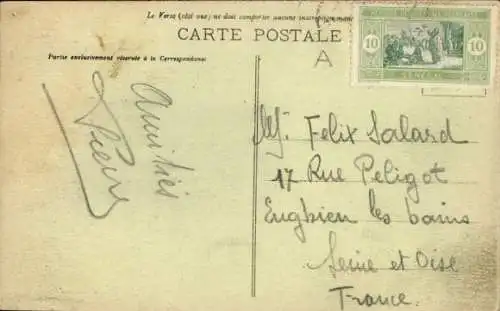 Le Verso (côté vue) ne doit comporter aucune inscription
CARTE POSTALE
Partie exclusivement réservée à la Correspondance
A
10 10
SÉNÉGAL
Amitiés
Pierre
M. Felix Salard
17 Rue Peligot
Enghien les bains
Seine et Oise
France.